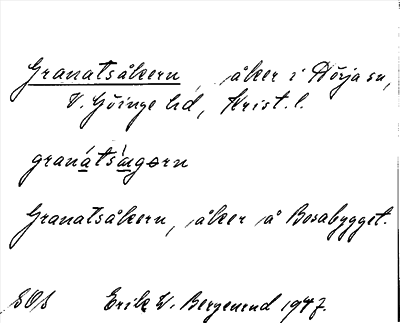 Granatsåkern, åker i Hörja sn,
V. Göinge hd, Krist. l.
Granatsåkern, åker å Bosabygget.
SOS Erik W. Bergenrud 1947.